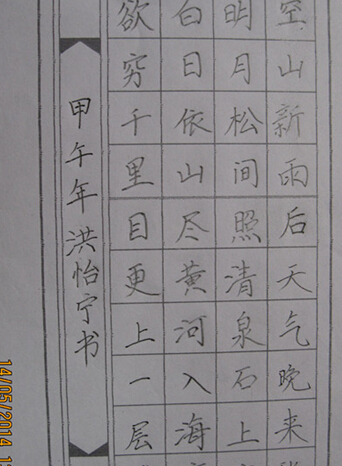 空山新雨后天气晚来
明月松间照清泉石上
白日依山尽黄河入海
欲穷千里目更上一层
甲午年洪怡宁书
14/05/2014 1